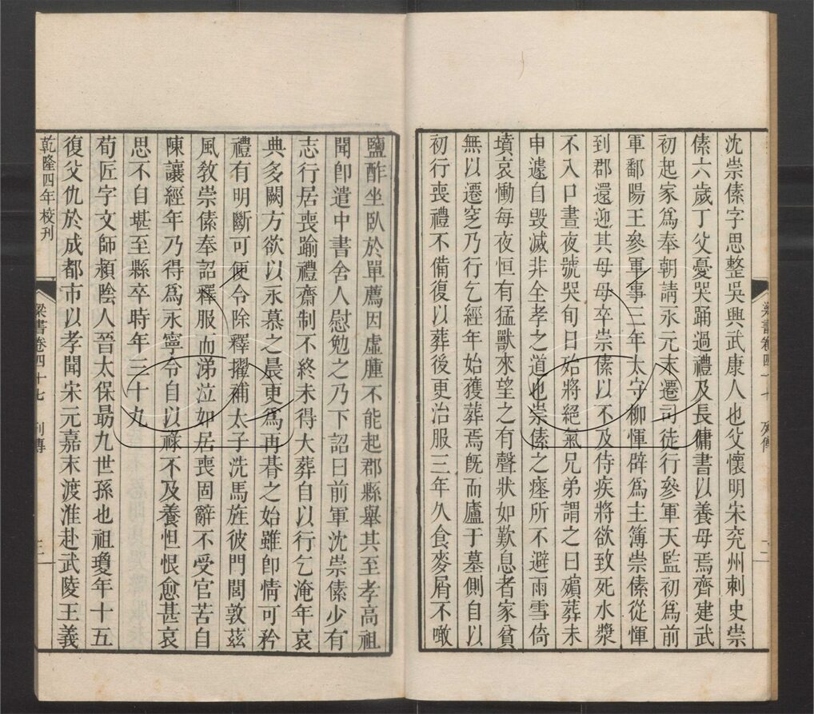 沈崇傃字思整吳興武康人也父懷明宋兖州刺史崇
傃六歲丁父憂哭踊過禮及長傭書以養母焉齊建武
初起家爲奉朝請永元末遷司徒行參軍天監初爲前
軍鄱陽王參軍事三年太守柳惲辟爲主簿崇傃從惲
到郡還迎其母母卒崇傃以不及侍疾將欲致死水漿
不入口晝夜號哭旬日殆將絕氣兄弟謂之曰殯葬未
申遽自毀滅非全孝之道也崇傃之瘞所不避雨雪倚
墳哀慟每夜恒有猛獸來望之有聲狀如歎息者家貧
無以遷窆乃行乞經年始獲葬焉旣而廬于墓側自以
初行喪禮不備復以葬後更治服三年久食麥屑不噉
鹽酢坐臥於單薦因虛腫不能起郡縣舉其至孝高祖
聞卽遣中書舍人慰勉之乃下詔曰前軍沈崇傃少有
志行居喪踰禮齋制不終未得大葬自以行乞淹年哀
典多闕方欲以永慕之晨更爲再朞之始雖卽情可矜
禮有明斷可便令除釋擢補太子洗馬旌彼門閭敦茲
風敎崇傃奉詔釋服而涕泣如居喪固辭不受官苦自
陳讓經年乃得爲永寧令自以祿不及養怛恨愈甚哀
思不自堪至縣卒時年三十九
荀匠字文師潁陰人晉太保最九世孫也祖瓊年十五
復父仇於成都市以孝聞宋元嘉末渡淮赴武陵王義
乾隆四年校刊
梁書卷四十七 列傳